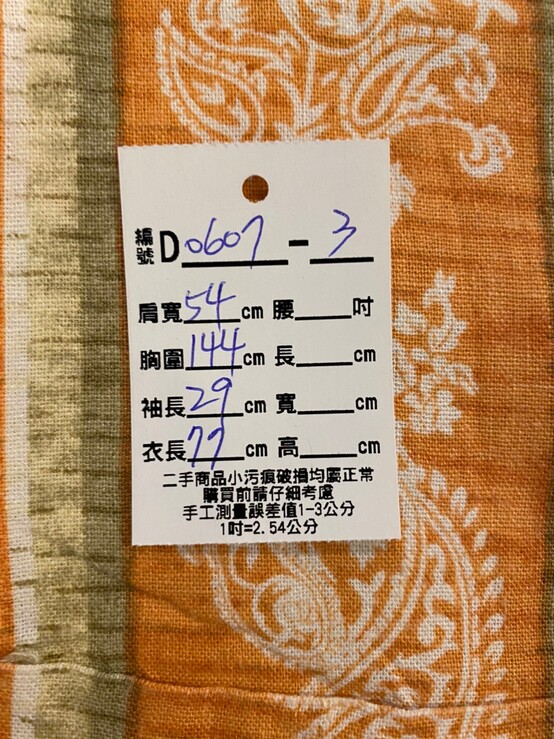 編號 D0607-3
肩寬54cm 腰____吋
胸圍144cm 長____cm
袖長29cm 寬____cm
衣長77cm 高____cm
二手商品小污痕破損均屬正常
購買前請仔細考慮
手工測量誤差值1-3公分
1吋=2.54公分